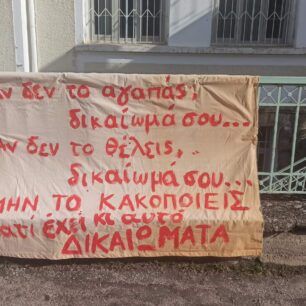 ΑΝ δεν το αγαπάς,
δικαίωμά σου...
ΑΝ δεν το θέλεις,
δικαίωμά σου...
ΜΗΝ ΤΟ ΚΑΚΟΠΟΙΕΙΣ
γιατί έχει κι αυτό
ΔΙΚΑΙΩΜΑΤΑ